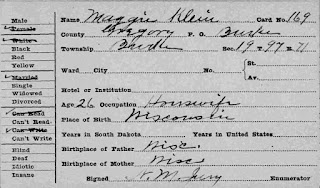 Male
Female
White
Black
Red
Yellow
Married
Single
Widowed
Divorced
Can Read
Can't Read
Can Write
Can't Write
Blind
Deaf
Idiotic
Insane
Name Maggie Klein Card No. 169
County Gregory P. O. Burke
Township Burke Sec. 19 97 71
Ward City No. St. Av.
Hotel or Institution
Age 26 Occupation Housewife
Place of Birth Wisconsin
Years in South Dakota Years in United States
Birthplace of Father Wisc.
Birthplace of Mother Wisc
Signed Enumerator